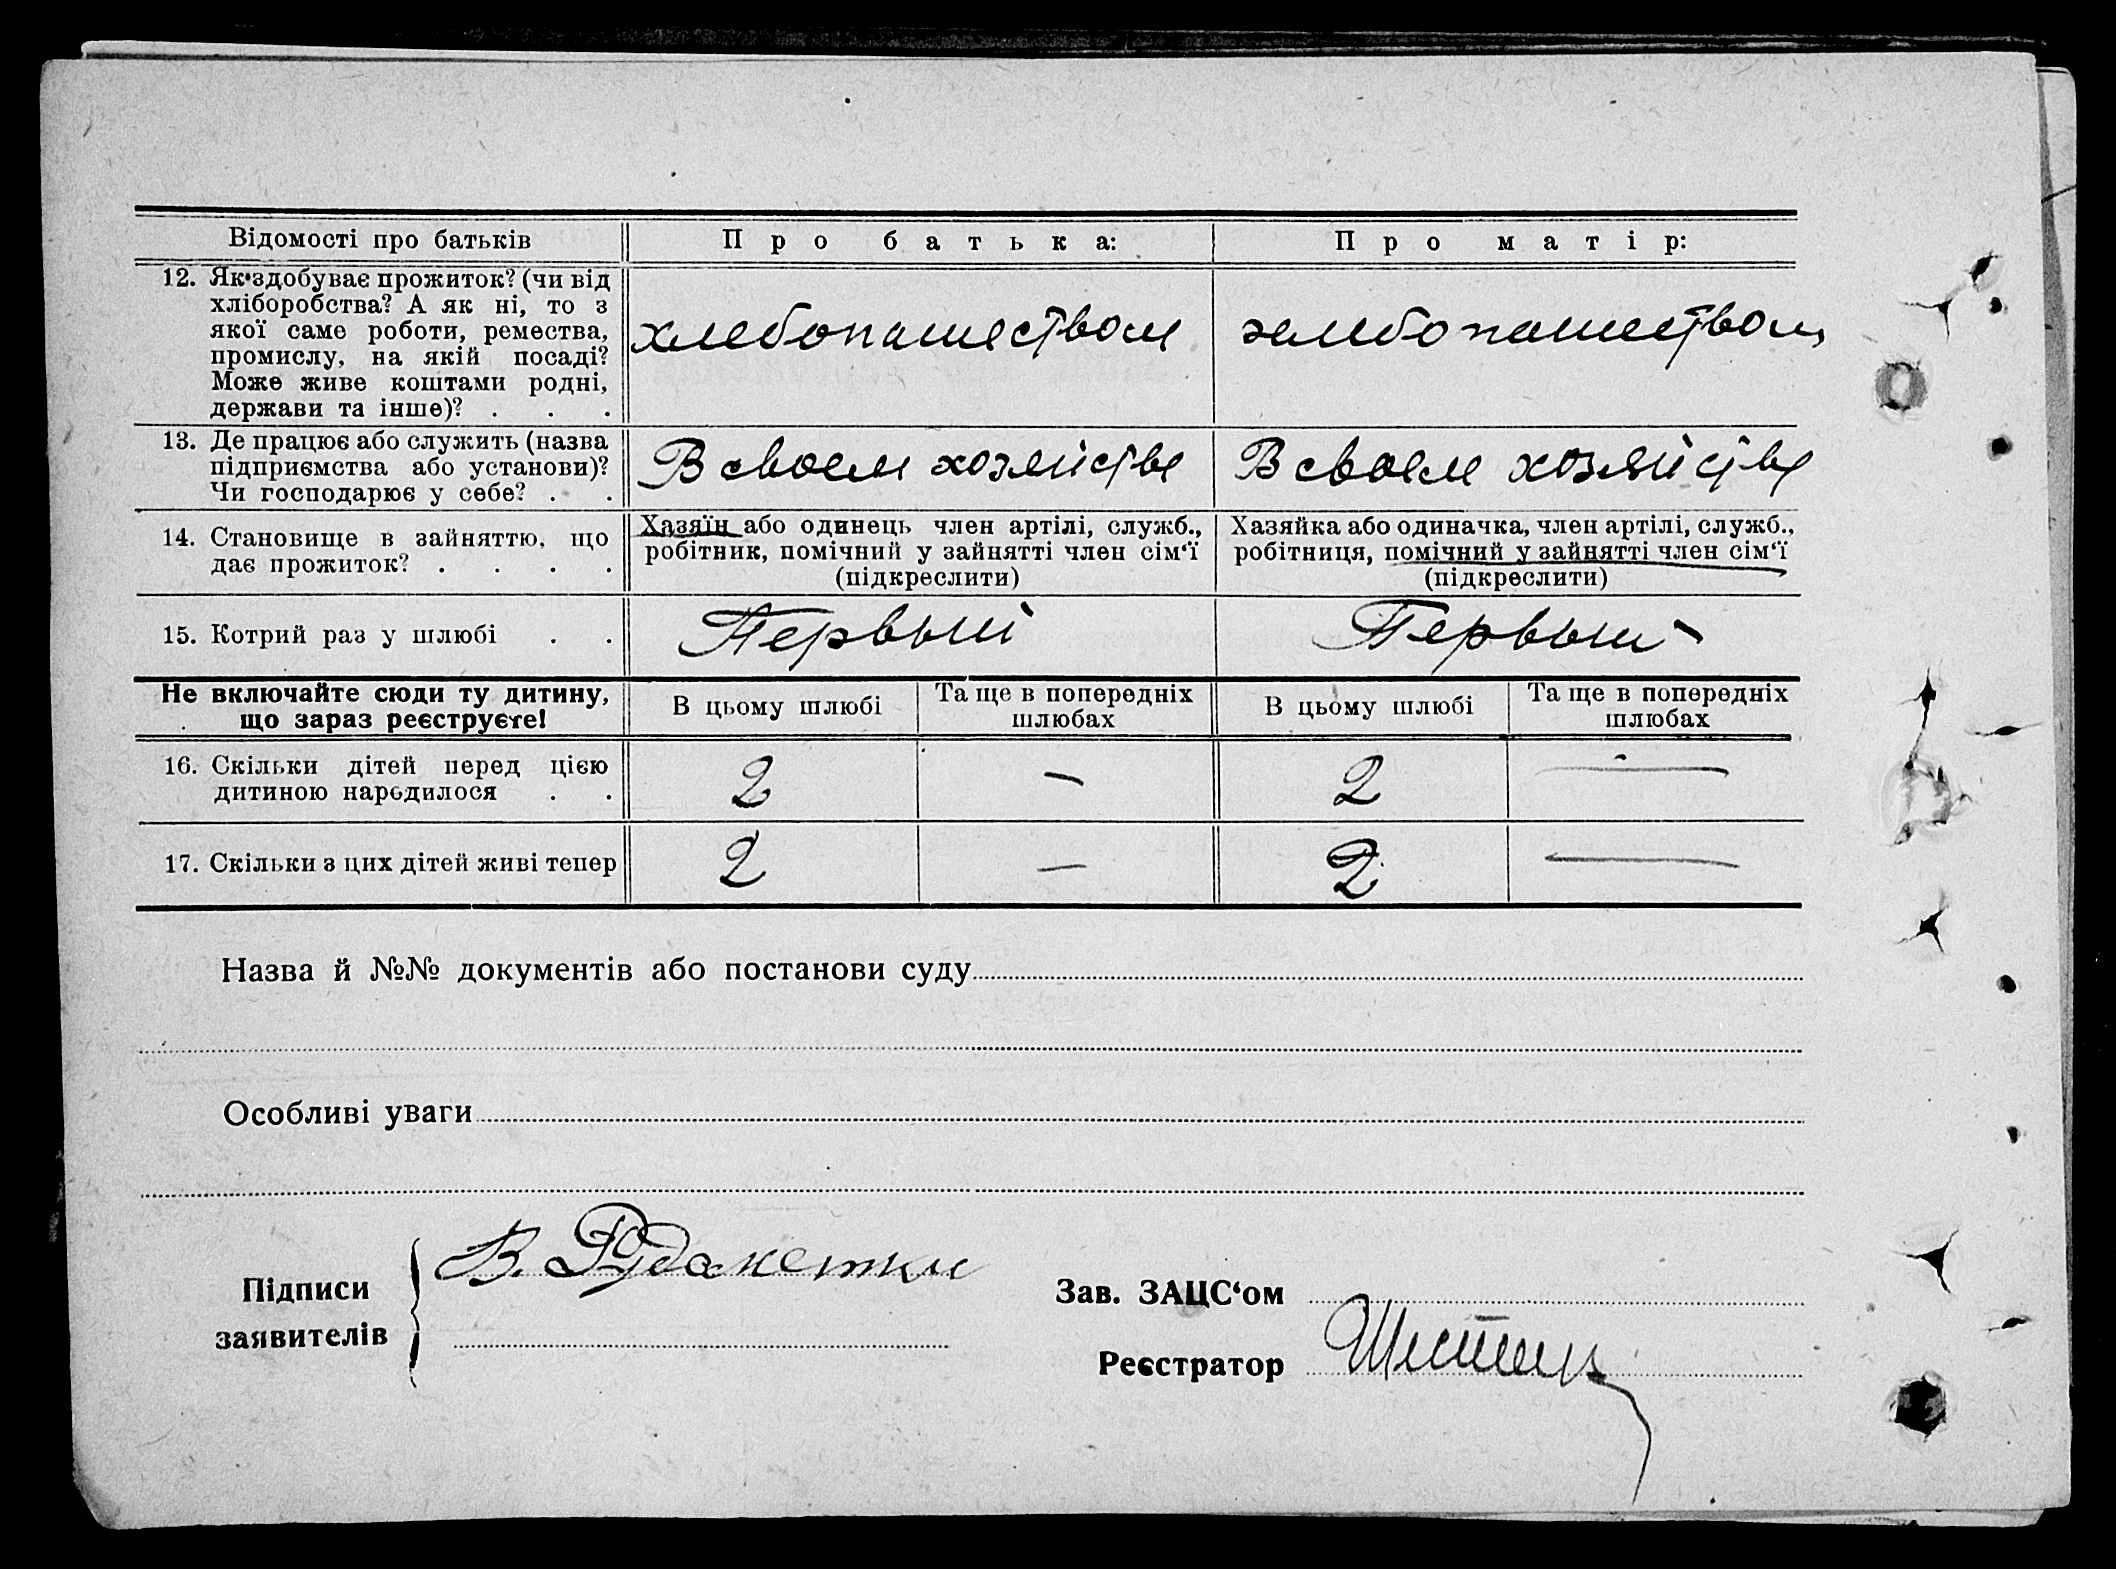 Відомості про батьків Про батька: Про матір:
12. Як здобуває прожиток? (чи від
хліборобства? А як ні, то з
якої саме роботи, ремества,
промислу, на якій посаді?
Може живе коштами родні,
держави та інше)? . . .
хлебопашеством хлебопашеством
13. Де працює або служить (назва
підприємства або установи)?
Чи господарює у себе? . .
В своем хозяйстве В своем хозяйстве
14. Становище в зайняттю, що
дає прожиток? . . . .
Хазяїн або одинець член артілі, служб.,
робітник, помічний у зайнятті член сім‘ї
(підкреслити)
Хазяйка або одиначка, член артілі, служб.,
робітниця, помічний у зайнятті член сім‘ї
(підкреслити)
15. Котрий раз у шлюбі . . Первый Первый
Не включайте сюди ту дитину,
що зараз реєструєте!
В цьому шлюбі
Та ще в попередніх
шлюбах
В цьому шлюбі
Та ще в попередніх
шлюбах
16. Скільки дітей перед цією
дитиною народилося . .
2 — 2 —
17. Скільки з цих дітей живі тепер 2 — 2 —
Назва й №№ документів або постанови суду
Особливі уваги
Підписи
заявителів
В.
Зав. ЗАЦС‘ом
Реєстратор